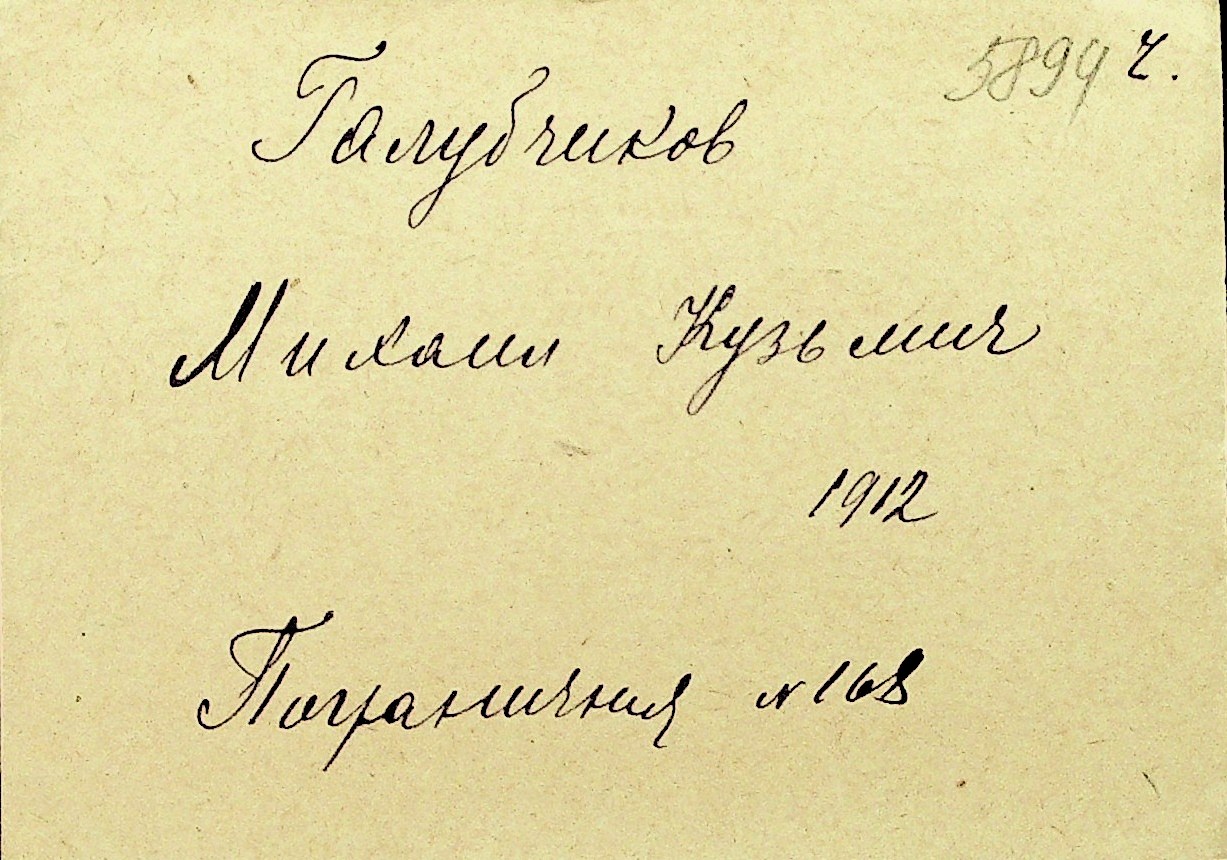 5894 ч.
Галубчиков
Михаил Кузьмич
1912
Пограничная №168